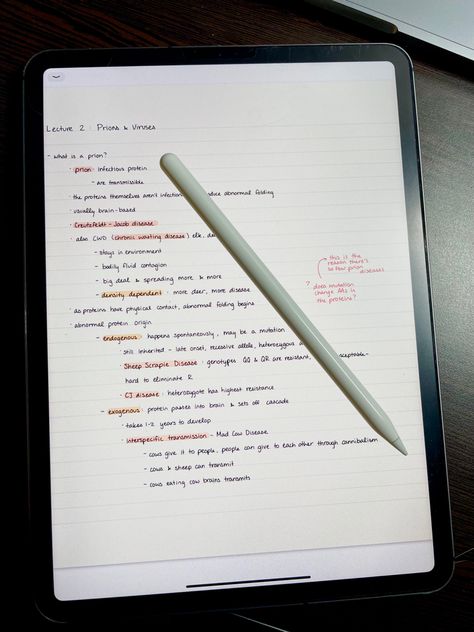 Lecture 2 : Prions & Viruses
- what is a prion?
· prion: infectious protein
- are transmissible
· the proteins themselves aren't infectious abnormal folding
· usually brain-based
· Creutzfeldt - Jacob disease
· also CWD (chronic wasting disease) elk,
- stays in environment
- bodily fluid contagion
- big deal & spreading more & more
- density dependent : more deer, more disease
this is the
reason there's
so few prion
diseases
? does mutation
change AAs in
the proteins?
· as proteins have physical contact, abnormal folding begins
· abnormal protein origin
- endogenous : happens spontaneously, may be a mutation
· still inherited - late onset, recessive allele, heterozygous
· Sheep Scrapie Disease : genotypes QQ & QR are resistant,
hard to eliminate R
· CJ disease : heterozygote has highest resistance
- exogenous : protein passes into brain & sets off cascade
· takes 1-2 years to develop
· interspecific transmission - Mad Cow Disease
- cows give it to people, people can give to each other through cannibalism
- cows & sheep can transmit
- cows eating cow brains transmits